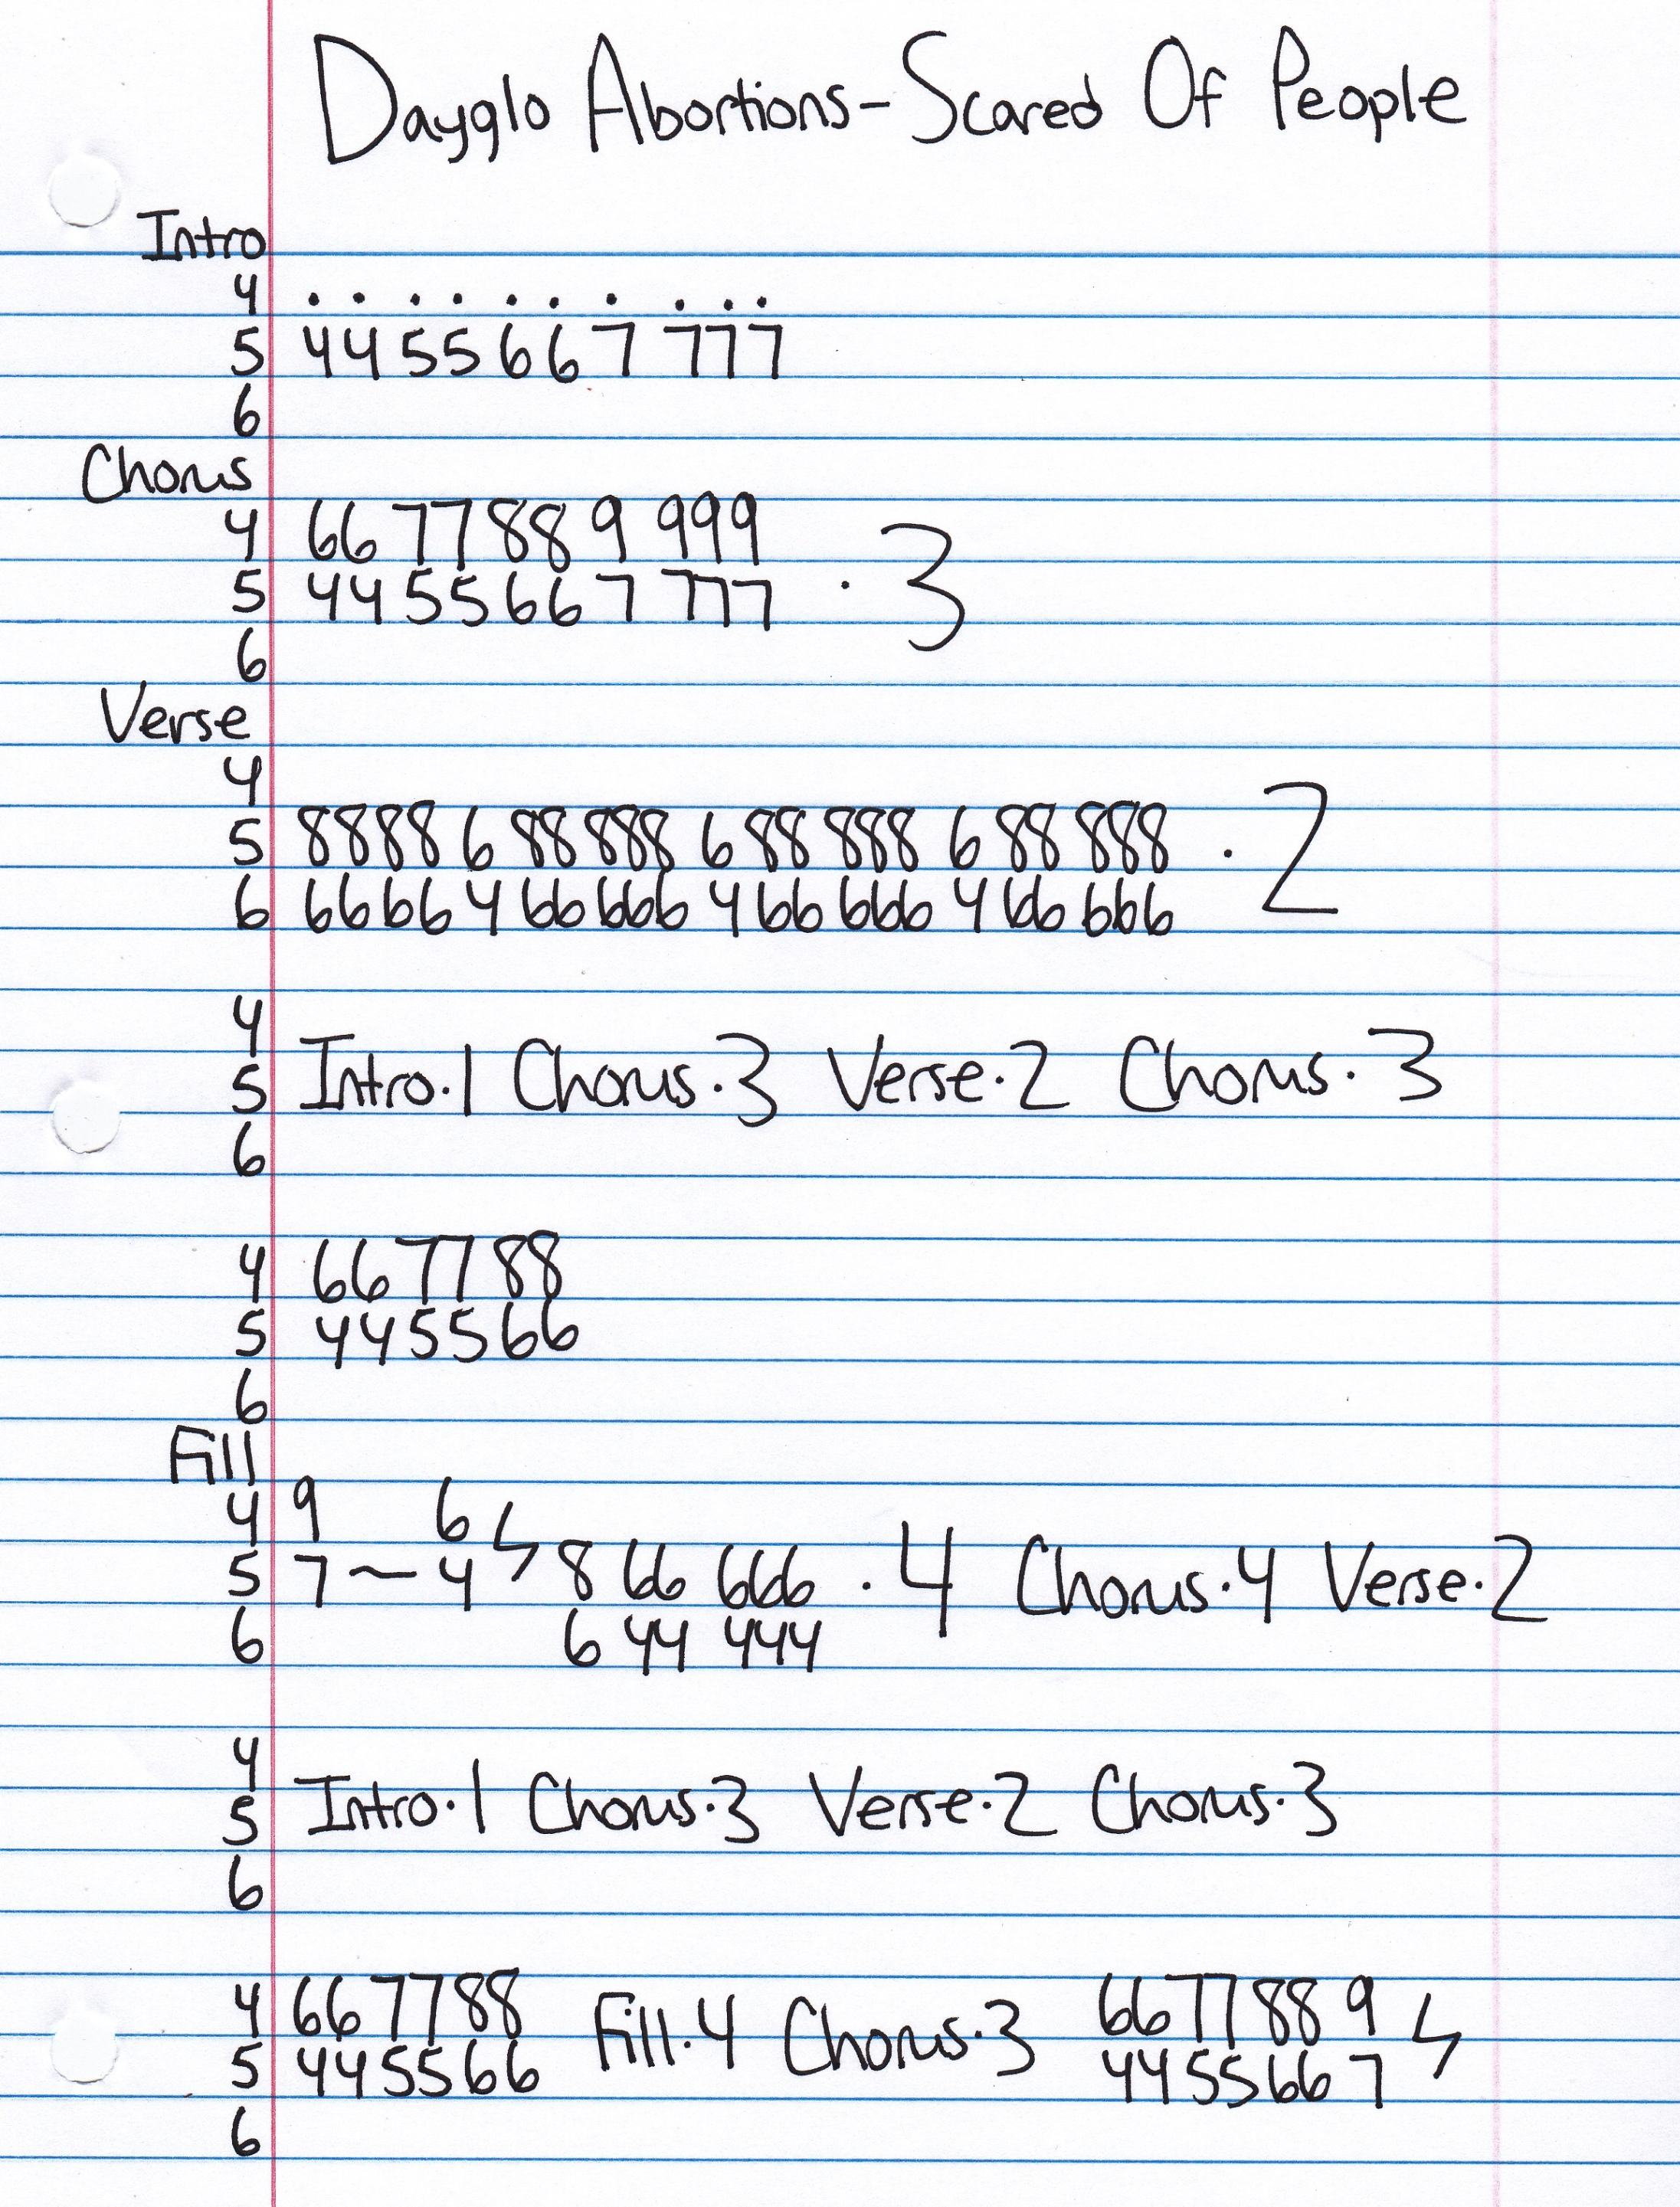 Dayglo Abortions - Scared Of People
Intro
4 . . . . . . . . . .
5 4 4 5 5 6 6 7 777
6
Chorus
4 66 77 88 9 999
5 44 55 66 7 777 . 3
6
Verse
4
5 8888 6 88 888 6 88 888 6 88 888 . 2
6 6666 4 66 666 4 66 666 4 66 666
4
5 Intro.1 Chorus.3 Verse.2 Chorus.3
6
4 66 77 88
5 44 55 66
6
Fill
4 9 6 ϟ
5 7 ~ 4 8 66 666 . 4 Chorus.4 Verse.2
6 6 44 444
4
5 Intro.1 Chorus.3 Verse.2 Chorus.3
6
4 66 77 88 Fill.4 Chorus.3 66 77 88 9 ϟ
5 44 55 66 44 55 66 7
6